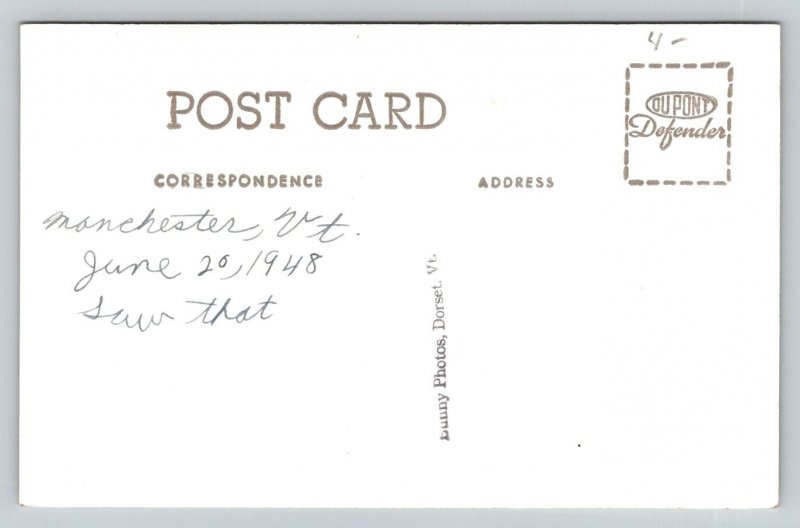 4-
POST CARD
DU PONT
Defender
CORRESPONDENCE
ADDRESS
Manchester, Vt.
June 20, 1948
Saw that
Bunny Photos, Dorset, Vt.